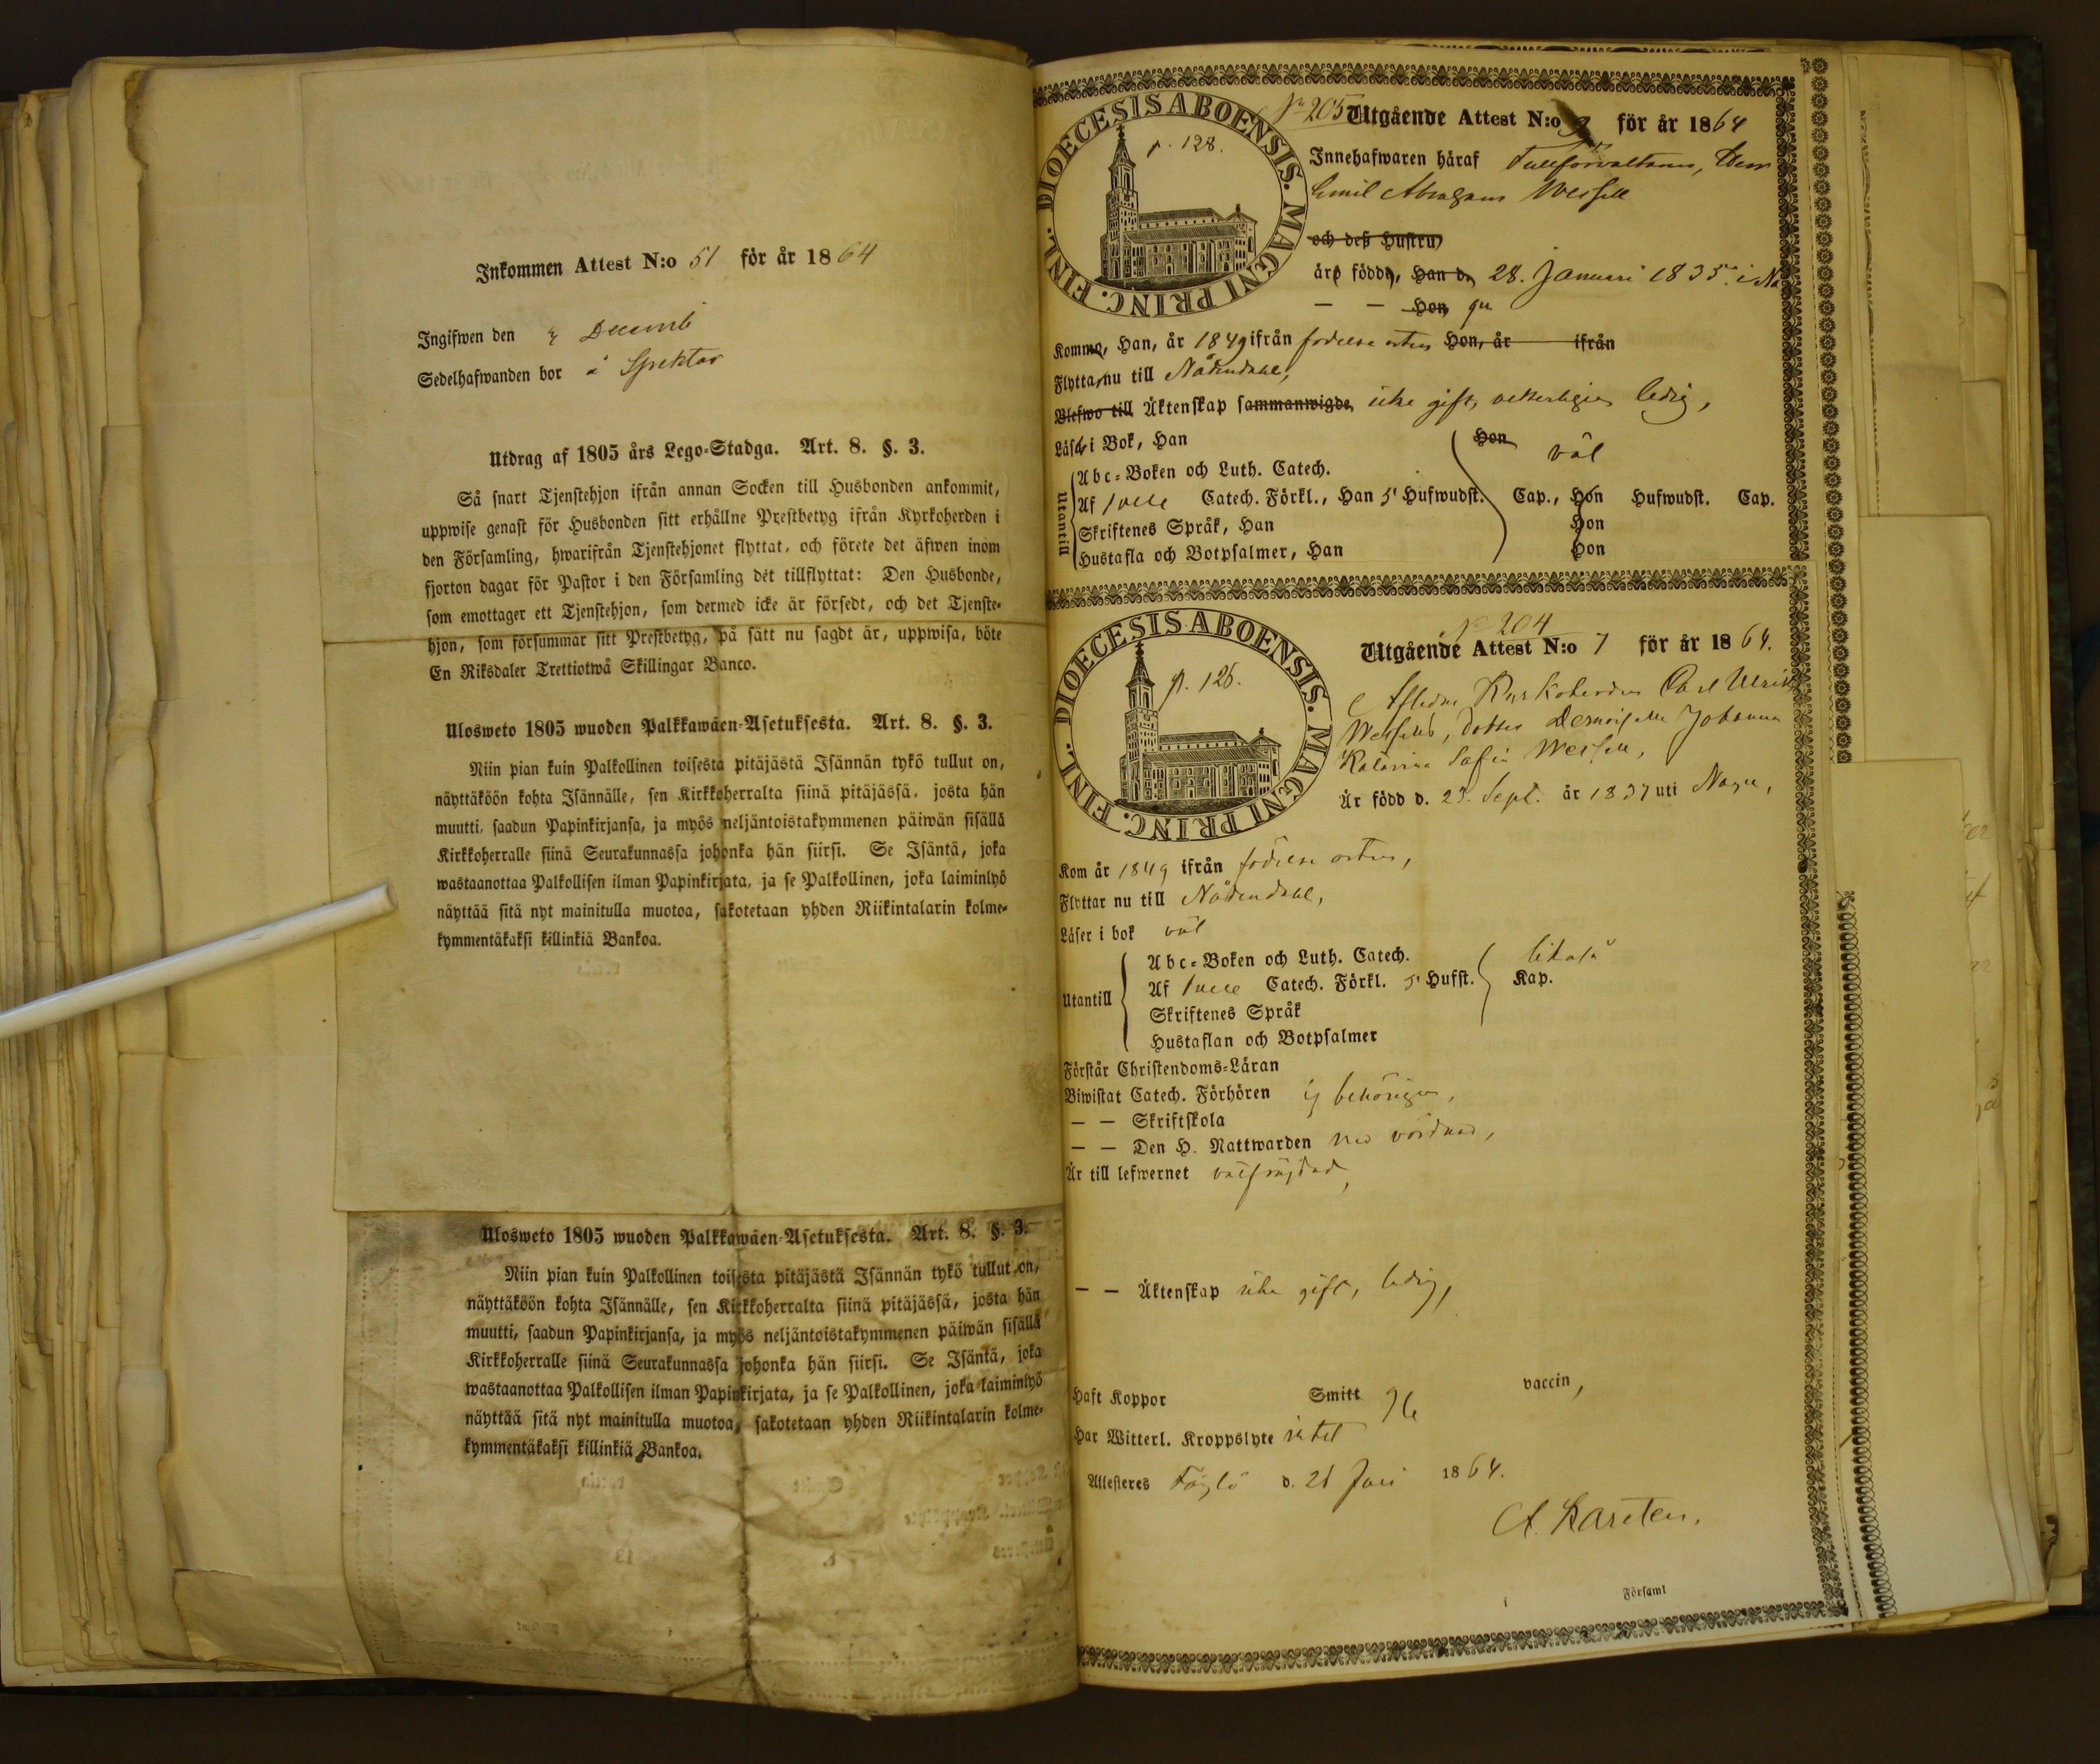 Inkommen Attest N:o 51 för år 1864
Ingifwen den 4 Decemb
Sedelhafwanden bor i
Utdrag af 1805 års Lego-Stadga. Art. 8. §. 3.
Så snart Tjenstehjon ifrån annan Socken till Husbonden ankommit,
uppwise genast för Husbonden sitt erhållne Prestbetyg ifrån Kyrkoherden i
den Församling, hwarifrån Tjenstehjonet flyttat, och förete det äfwen inom
fjorton dagar för Pastor i den Församling det tillflyttat: Den Husbonde,
som emottager ett Tjenstehjon, som dermed icke är försedt, och det Tjenste-
hjon, som försummar sitt Prestbetyg, på sätt nu sagdt är, uppwisa, böte
En Riksdaler Trettiotwå Skillingar Banco.
Ulosweto 1805 wuoden Palkkawäen-Asetuksesta. Art. 8. §. 3.
Niin pian kuin Palkollinen toisesta pitäjästä Isännän tykö tullut on,
näyttäköön kohta Isännälle, sen Kirkkoherralta siinä pitäjässä, josta hän
muutti, saadun Papinkirjansa, ja myös neljäntoistakymmenen päiwän sisällä
Kirkkoherralle siinä Seurakunnassa johonka hän siirsi. Se Isäntä, joka
wastaanottaa Palkollisen ilman Papinkirjata, ja se Palkollinen, joka laiminlyö
näyttää sitä nyt mainitulla muotoa, sakotetaan yhden Riikintalarin kolme-
kymmentäkaksi killinkiä Bankoa.
Ulosweto 1805 wuoden Palkkawäen-Asetuksesta. Art. 8. §. 3.
Niin pian kuin Palkollinen toisesta pitäjästä Isännän tykö tullut on,
näyttäköön kohta Isännälle, sen Kirkkoherralta siinä pitäjässä, josta hän
muutti, saadun Papinkirjansa, ja myös neljäntoistakymmenen päiwän sisällä
Kirkkoherralle siinä Seurakunnassa johonka hän siirsi. Se Isäntä, joka
wastaanottaa Palkollisen ilman Papinkirjata, ja se Palkollinen, joka laiminlyö
näyttää sitä nyt mainitulla muotoa, sakotetaan yhden Riikintalarin kolme-
kymmentäkaksi killinkiä Bankoa.
DIOECESIS ABOENSIS. MAGNI PRINC. FINL.
p. 128.
No 205 Utgående Attest N:o för år 1864
Innehafwaren häraf Tullförvaltaren, Herr
Emil Abraham Wessell
och deß Hustru
äro födde, Han d. 28. Januari 1835 i Na
— — Hon gu
Komme, Han, år 1849 ifrån födelse orten Hon, år ifrån
Flytta nu till Nådendahl,
Blefwo till Äktenskap sammanwigde, icke gift, veterligen ledig,
Läsa i Bok, Han Hon väl
Utantill
Abc-Boken och Luth. Catech.
Af Catech. Förkl., Han 5 Hufwudst. Cap., Hon Hufwudst. Cap.
Skriftenes Språk, Han Hon
Hustafla och Botpsalmer, Han Hon
DIOECESIS ABOENSIS. MAGNI PRINC. FINL.
p. 128.
No 204
Utgående Attest N:o 7 för år 1864.
Aflidne Kyrkoherden Carl Ulrik
Wessells, dotter Demoiselle Johanna
Katarina Sofia Wessell,
Är född d. 25. Sept. år 1837 uti Nagu,
Kom år 1849 ifrån födelse orten,
Flyttar nu till Nådendahl,
Läser i bok väl
Utantill
Abc-Boken och Luth. Catech. likaså
Af Catech. Förkl. 5 Hufst. Kap.
Skriftenes Språk
Hustaflan och Botpsalmer
Förstår Christendoms-Läran
Biwistat Catech. Förhören ej behörigen,
— — Skriftskola
— — Den H. Nattwarden med vördnad,
Är till lefwernet välfrejdad,
— — Äktenskap icke gift, ledig,
Haft Koppor Smitt vaccin,
Har Witterl. Kroppslyte intet
Attesteres Föglö d. 21 Juni 1864.
A. Karsten.
Församl